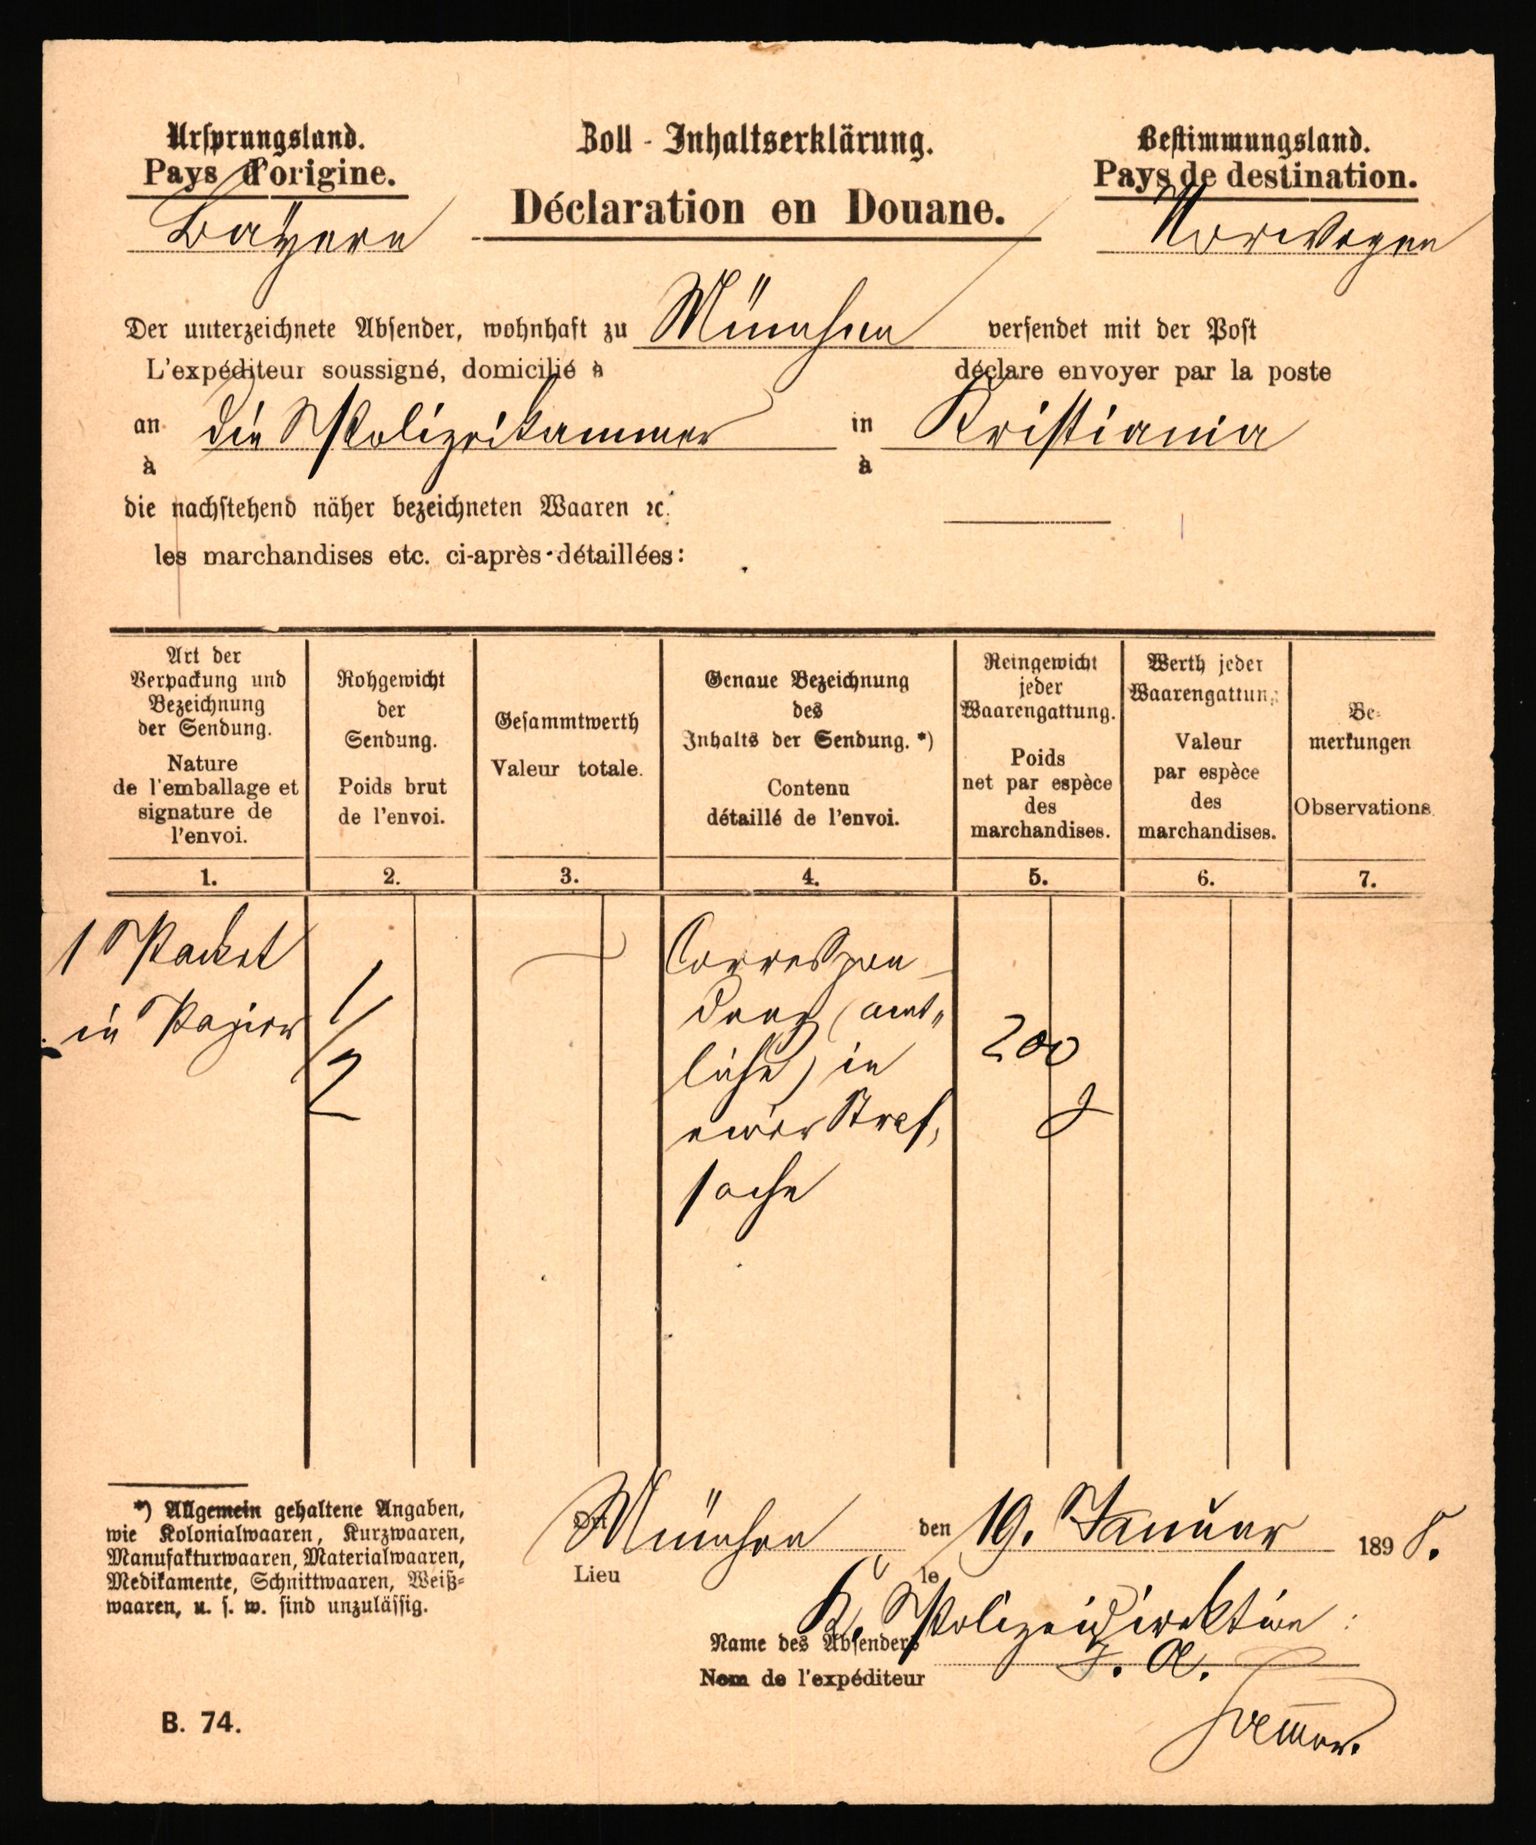 Ursprungsland.
Pays d'origine.
Bayern
Zoll - Inhaltserklärung.
Déclaration en Douane.
Bestimmungsland.
Pays de destination.
Norwegen
Der unterzeichnete Absender, wohnhaft zu München versendet mit der Post
L'expéditeur soussigné, domicilié à déclare envoyer par la poste
an die Polizeikammer in Kristiania
à à
die nachstehend näher bezeichneten Waaren ꝛc.
les marchandises etc. ci-après détaillées:
Art der
Verpackung und
Bezeichnung
der Sendung.
Nature
de l'emballage et
signature de
l'envoi.
Rohgewicht
der
Sendung.
Poids brut
de l'envoi.
Gesammtwerth
Valeur totale.
Genaue Bezeichnung
des
Inhalts der Sendung. *)
Contenu
détaillé de l'envoi.
Reingewicht
jeder
Waarengattung.
Poids
net par espèce
des
marchandises.
Werth jeder
Waarengattung
Valeur
par espèce
des
marchandises.
Be-
merkungen
Observations.
1. 2. 3. 4. 5. 6. 7.
1 Packet
in Papier
1/2
Correspon-
denz (amt-
liche) in
einer Straf-
sache
200
g
*) Allgemein gehaltene Angaben,
wie Kolonialwaaren, Kurzwaaren,
Manufakturwaaren, Materialwaaren,
Medikamente, Schnittwaaren, Weiß-
waaren, u. s. w. sind unzulässig.
Ort München den 19. Januar 1898.
Lieu le
K. Polizeidirektion:
Name des Absenders
Nom de l'expéditeur
I. A.
B. 74.